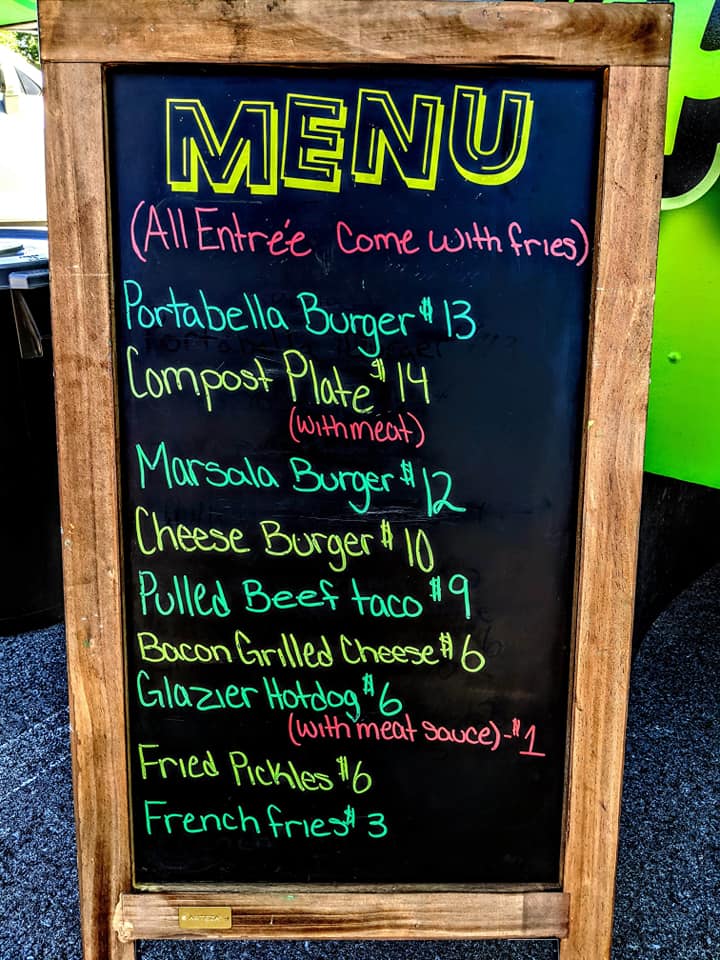 MENU
(All Entrée Come with fries)
Portabella Burger $13
Compost Plate $14
(with meat)
Marsala Burger $12
Cheese Burger $10
Pulled Beef taco $9
Bacon Grilled Cheese $6
Glazier Hotdog $6
(with meat sauce)-$1
Fried Pickles $6
French fries $3
ARTEZA